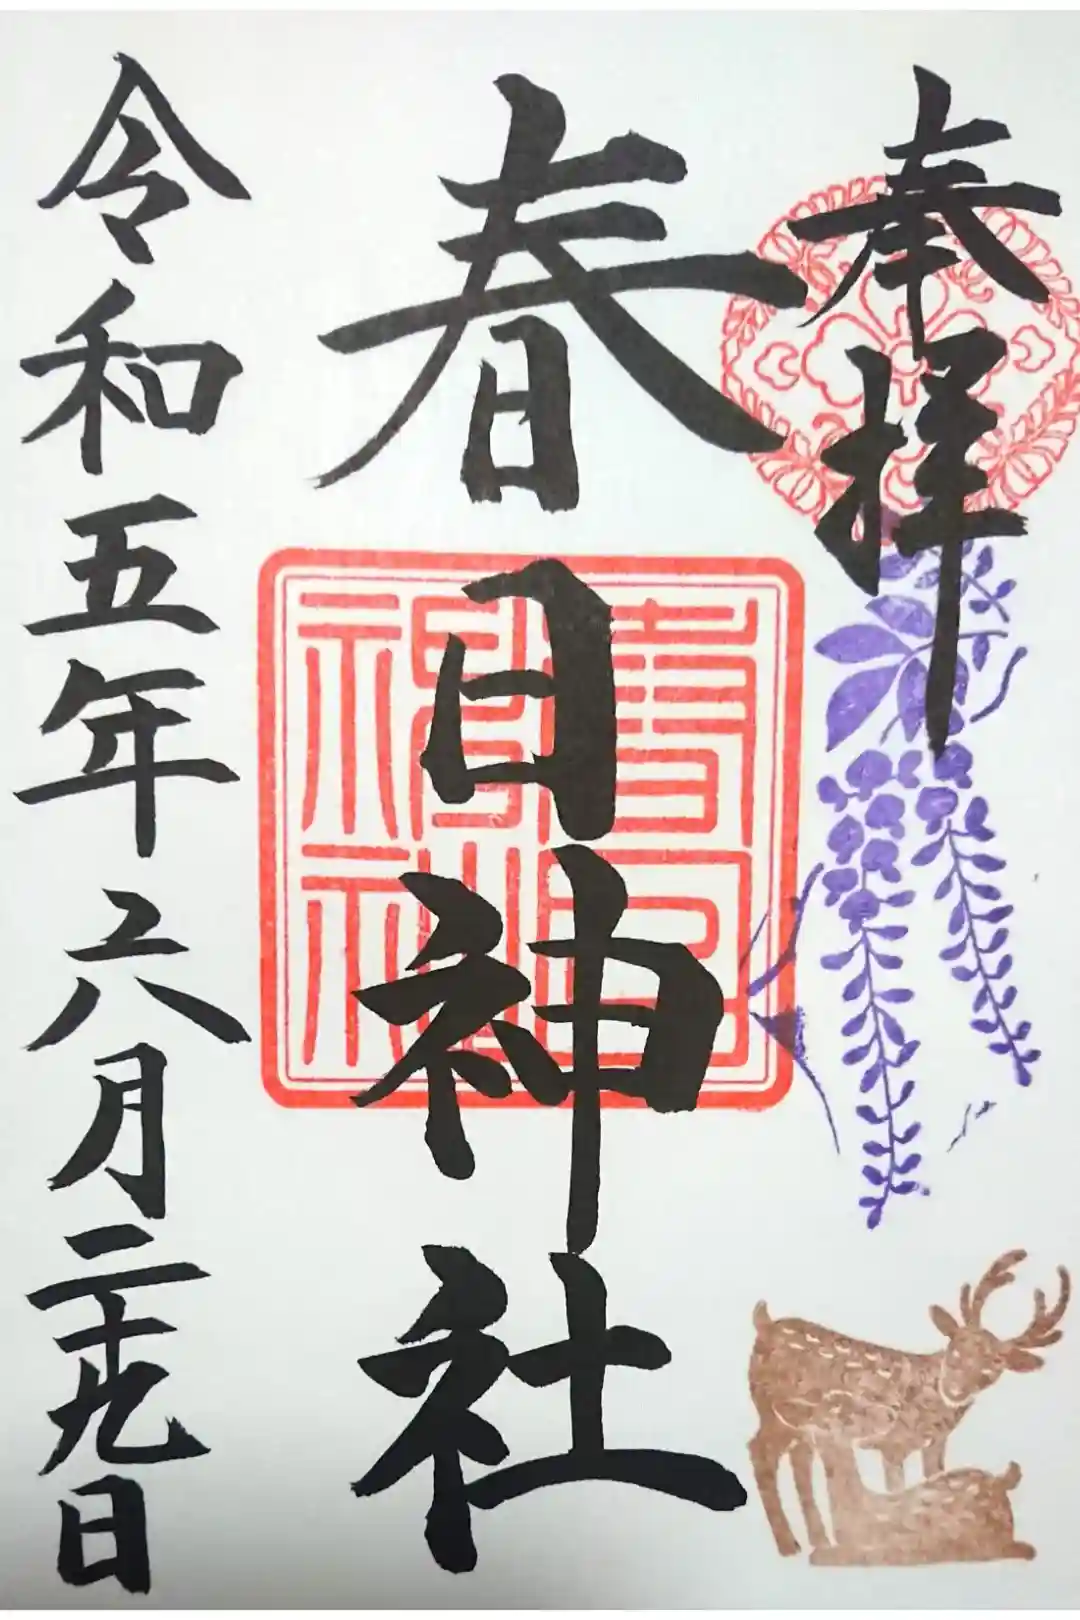 奉拝
春日神社
春日神社
令和五年六月二十九日